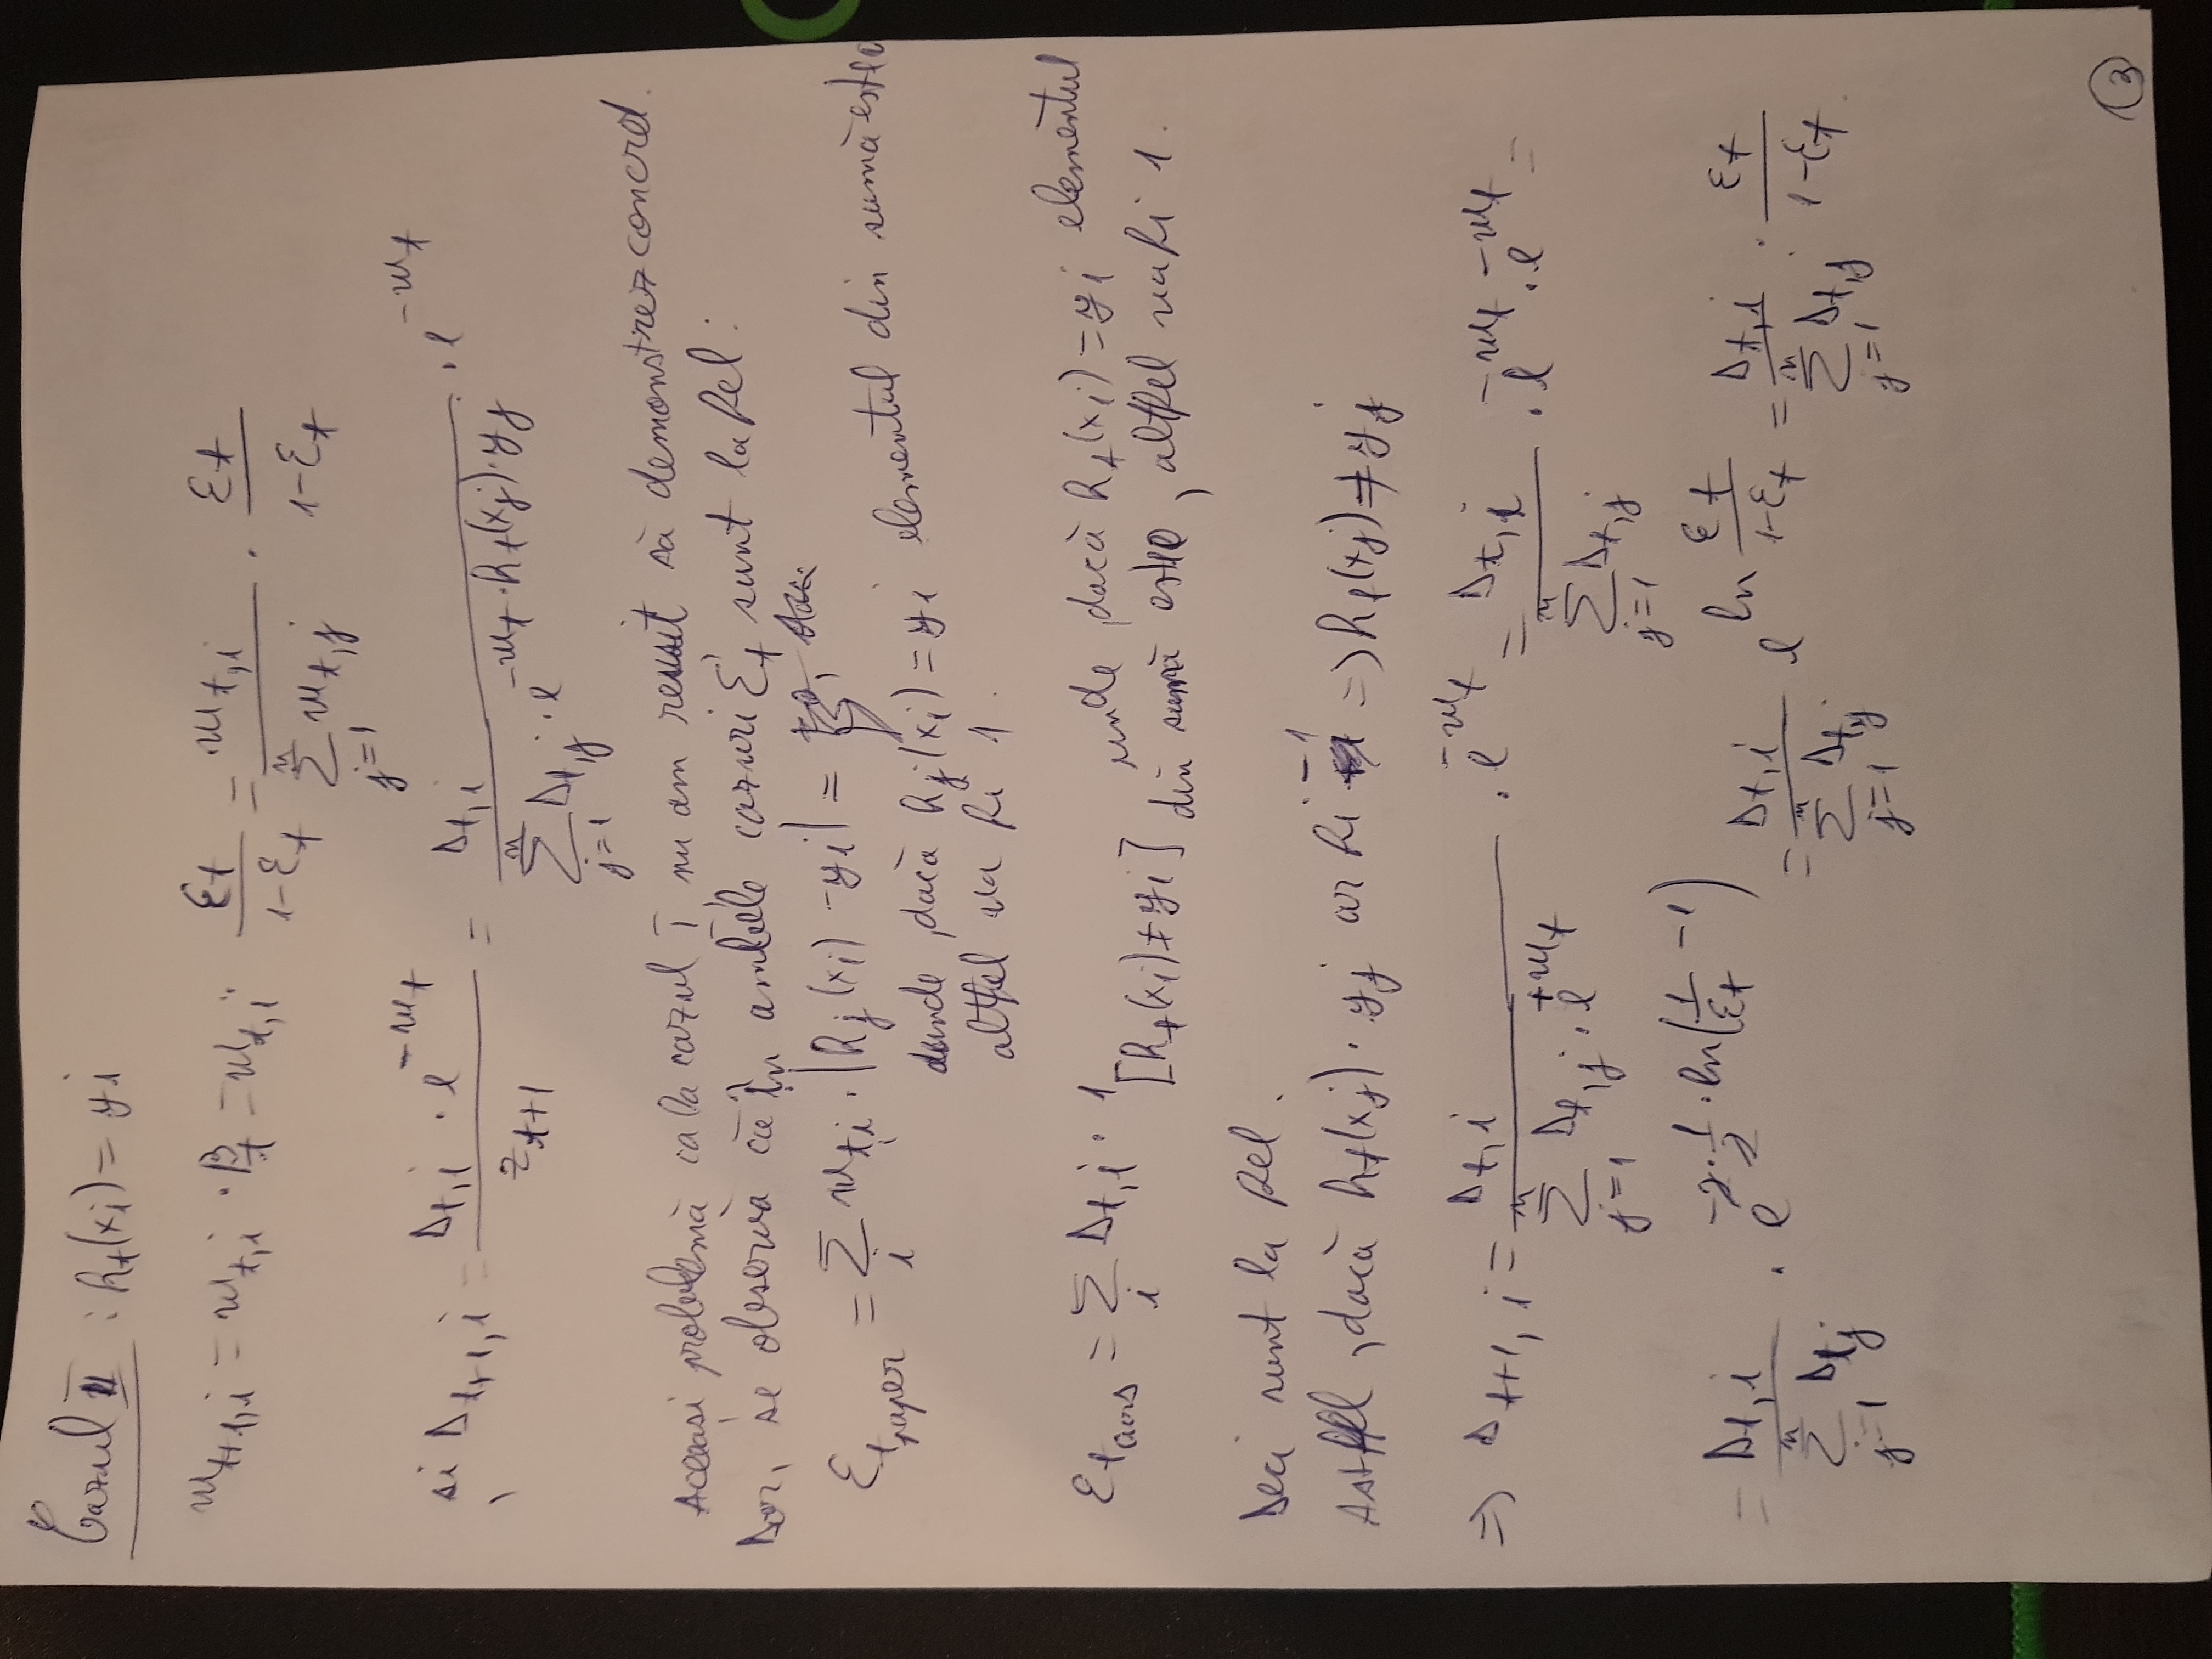 Cazul II : h_t(x_i) = y_i
w_{t+1,i} = w_{t,i} · β_t = w_{t,i} · ε_t / (1-ε_t) = w_{t,i} / (∑_{j=1}^{n} w_{t,j}) · ε_t / (1-ε_t)
și D_{t+1,i} = (D_{t,i} · e^{-w_t}) / z_{t+1} = D_{t,i} / (∑_{j=1}^{n} D_{t,j} · e^{-w_t · h_t(x_j) · y_j}) · e^{-w_t}
Aceeași problemă ca la cazul I, nu am reusit să demonstrez concret.
Dar, se observă că în ambele cazuri ε_t sunt la fel :
ε_{t paper} = ∑_i w_{t,i} · |h_j(x_i) - y_i| =
unde, dacă h_j(x_i) = y_i elementul din sumă este 0
altfel va fi 1.
ε_{t ours} = ∑_i D_{t,i} · 1_{[h_t(x_i) ≠ y_i]} unde, dacă h_t(x_i) = y_i elementul
din sumă este 0, altfel va fi 1.
Deci sunt la fel.
Astfel, dacă h_t(x_j) · y_j ar fi -1 => h_t(x_j) ≠ y_j
=> D_{t+1,i} = D_{t,i} / (∑_{j=1}^{n} D_{t,j} · e^{+w_t}) · e^{-w_t} = D_{t,i} / (∑_{j=1}^{n} D_{t,j}) · e^{-w_t} · e^{-w_t} =
= D_{t,i} / (∑_{j=1}^{n} D_{t,j}) · e^{-2 · 1/2 · ln(1/ε_t - 1)} = D_{t,i} / (∑_{j=1}^{n} D_{t,j}) e^{ln ε_t / (1-ε_t)} = D_{t,i} / (∑_{j=1}^{n} D_{t,j}) · ε_t / (1-ε_t).
3